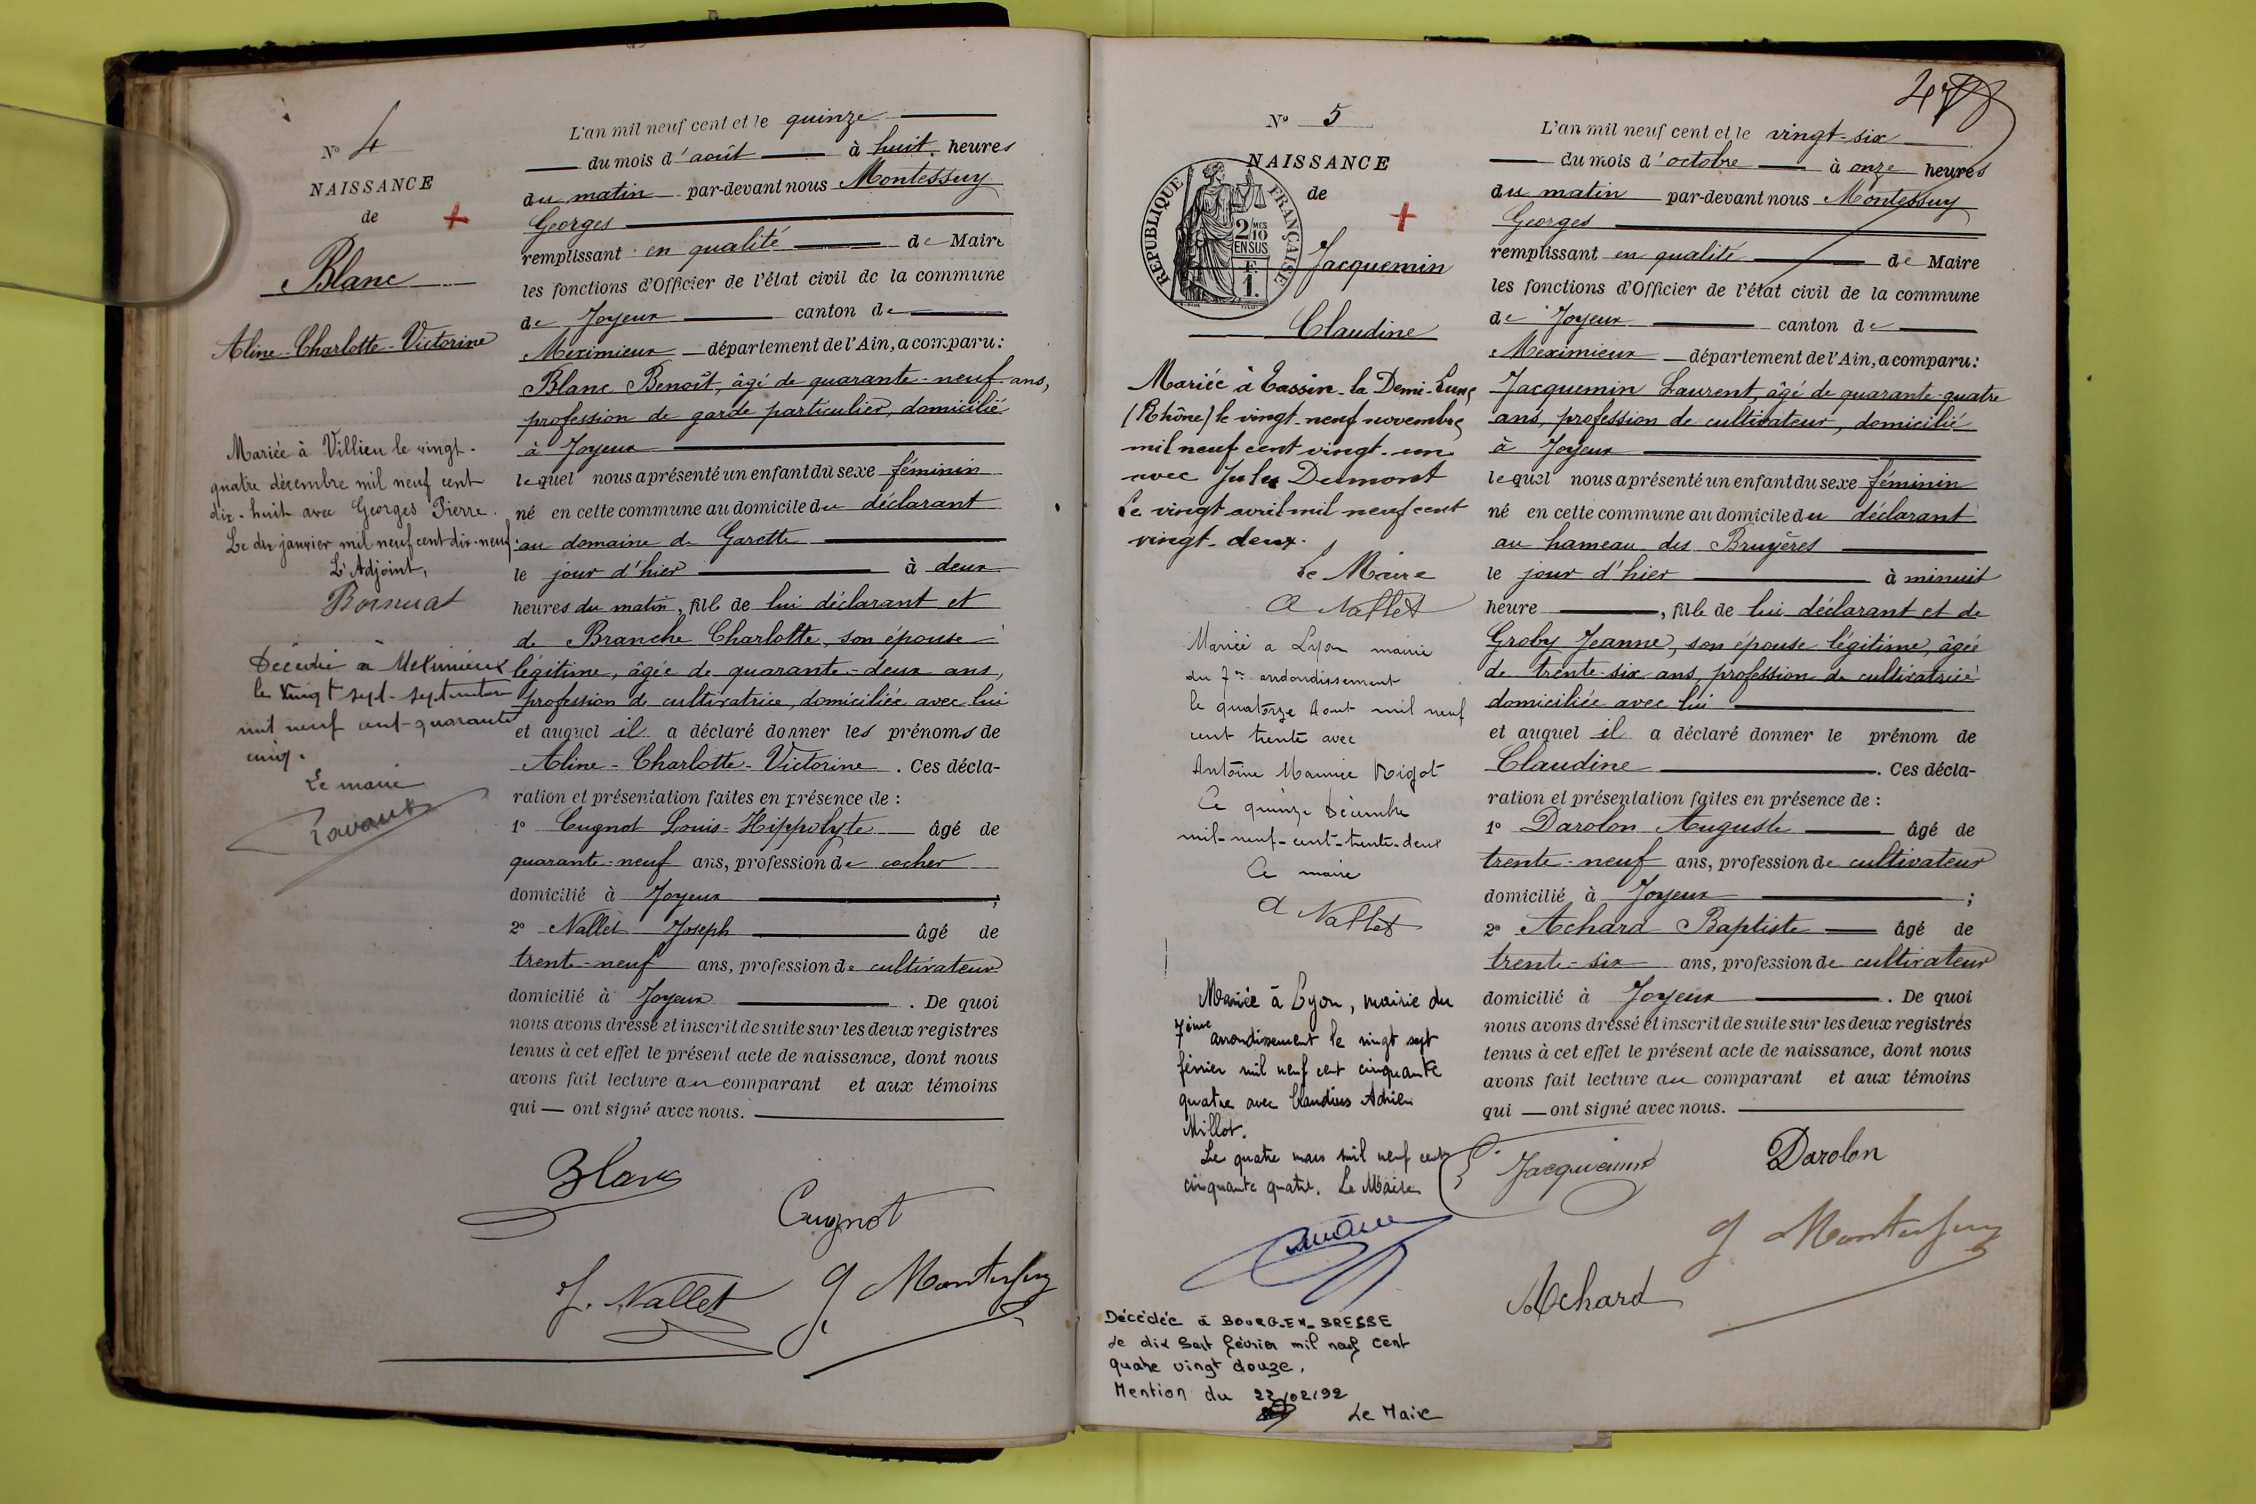 N° 4
NAISSANCE
de
Blanc
Aline-Charlotte-Victorine
Mariée à Villieu le vingt-
quatre décembre mil neuf cent
dix-huit avec Georges Pierre.
Le dix janvier mil neuf cent dix-neuf.
L'Adjoint,
Décédée à Meximieux
le vingt sept septembre
mil neuf cent quarante
cinq.
Le maire
L'an mil neuf cent et le quinze
du mois d'août à huit heures
du matin par-devant nous Montessuy
Georges
remplissant en qualité de Maire
les fonctions d'Officier de l'état civil de la commune
de Joyeux canton de
Meximieux département de l'Ain, a comparu:
Blanc Benoît, âgé de quarante-neuf ans,
profession de garde particulier, domicilié
à Joyeux
lequel nous a présenté un enfant du sexe féminin
né en cette commune au domicile du déclarant
au domaine de Garette
le jour d'hier à deux
heures du matin, fille de lui déclarant et
de Branche Charlotte, son épouse
légitime, âgée de quarante-deux ans,
profession de cultivatrice, domiciliée avec lui
et auquel il a déclaré donner les prénoms de
Aline-Charlotte-Victorine. Ces décla-
ration et présentation faites en présence de :
1° Cugnot Louis-Hippolyte âgé de
quarante-neuf ans, profession de cocher
domicilié à Joyeux ;
2° Nallet Joseph âgé de
trente-neuf ans, profession de cultivateur
domicilié à Joyeux. De quoi
nous avons dressé et inscrit de suite sur les deux registres
tenus à cet effet le présent acte de naissance, dont nous
avons fait lecture au comparant et aux témoins
qui ont signé avec nous.
Blanc
Cugnot
J. Nallet
G Montessuy
N° 5
NAISSANCE
de
RÉPUBLIQUE FRANÇAISE
2/10 MES
EN SUS
F.
1.
Jacquemin
Claudine
Mariée à Tassin-la Demi-Lune
(Rhône) le vingt-neuf novembre
mil neuf cent vingt-un
avec Jules Dumont
Le vingt avril mil neuf cent
vingt-deux.
Le Maire
A Nallet
Mariée à Lyon mairie
du 7me arrondissement
le quatorze Aout mil neuf
cent trente avec
Antoine Maurice Rigot
Ce quinze Décembre
mil-neuf-cent-trente-deux
Le maire
A Nallet
Mariée à Lyon, mairie du
7ème arrondissement le vingt sept
février mil neuf cent cinquante
quatre avec Claudius Adrien
Millot.
Le quatre mars mil neuf cent
cinquante quatre. Le Maire
Décédée à BOURG-EN-BRESSE
Le dix sept février mil neuf cent
quatre vingt douze.
Mention du 22/02/92
Le Maire
L'an mil neuf cent et le vingt-six
du mois d'octobre à onze heures
du matin par-devant nous Montessuy
Georges
remplissant en qualité de Maire
les fonctions d'Officier de l'état civil de la commune
de Joyeux canton de
Meximieux département de l'Ain, a comparu:
Jacquemin Laurent, âgé de quarante-quatre
ans, profession de cultivateur, domicilié
à Joyeux
lequel nous a présenté un enfant du sexe féminin
né en cette commune au domicile du déclarant
au hameau des Bruyères
le jour d'hier à minuit
heure, fille de lui déclarant et de
Groby Jeanne, son épouse légitime, âgée
de trente-six ans, profession de cultivatrice
domiciliée avec lui
et auquel il a déclaré donner le prénom de
Claudine. Ces décla-
ration et présentation faites en présence de :
1° Darolon Auguste âgé de
trente-neuf ans, profession de cultivateur
domicilié à Joyeux ;
2° Achard Baptiste âgé de
trente-six ans, profession de cultivateur
domicilié à Joyeux. De quoi
nous avons dressé et inscrit de suite sur les deux registres
tenus à cet effet le présent acte de naissance, dont nous
avons fait lecture au comparant et aux témoins
qui ont signé avec nous.
Jacquemin
Darolon
G Montessuy
Achard